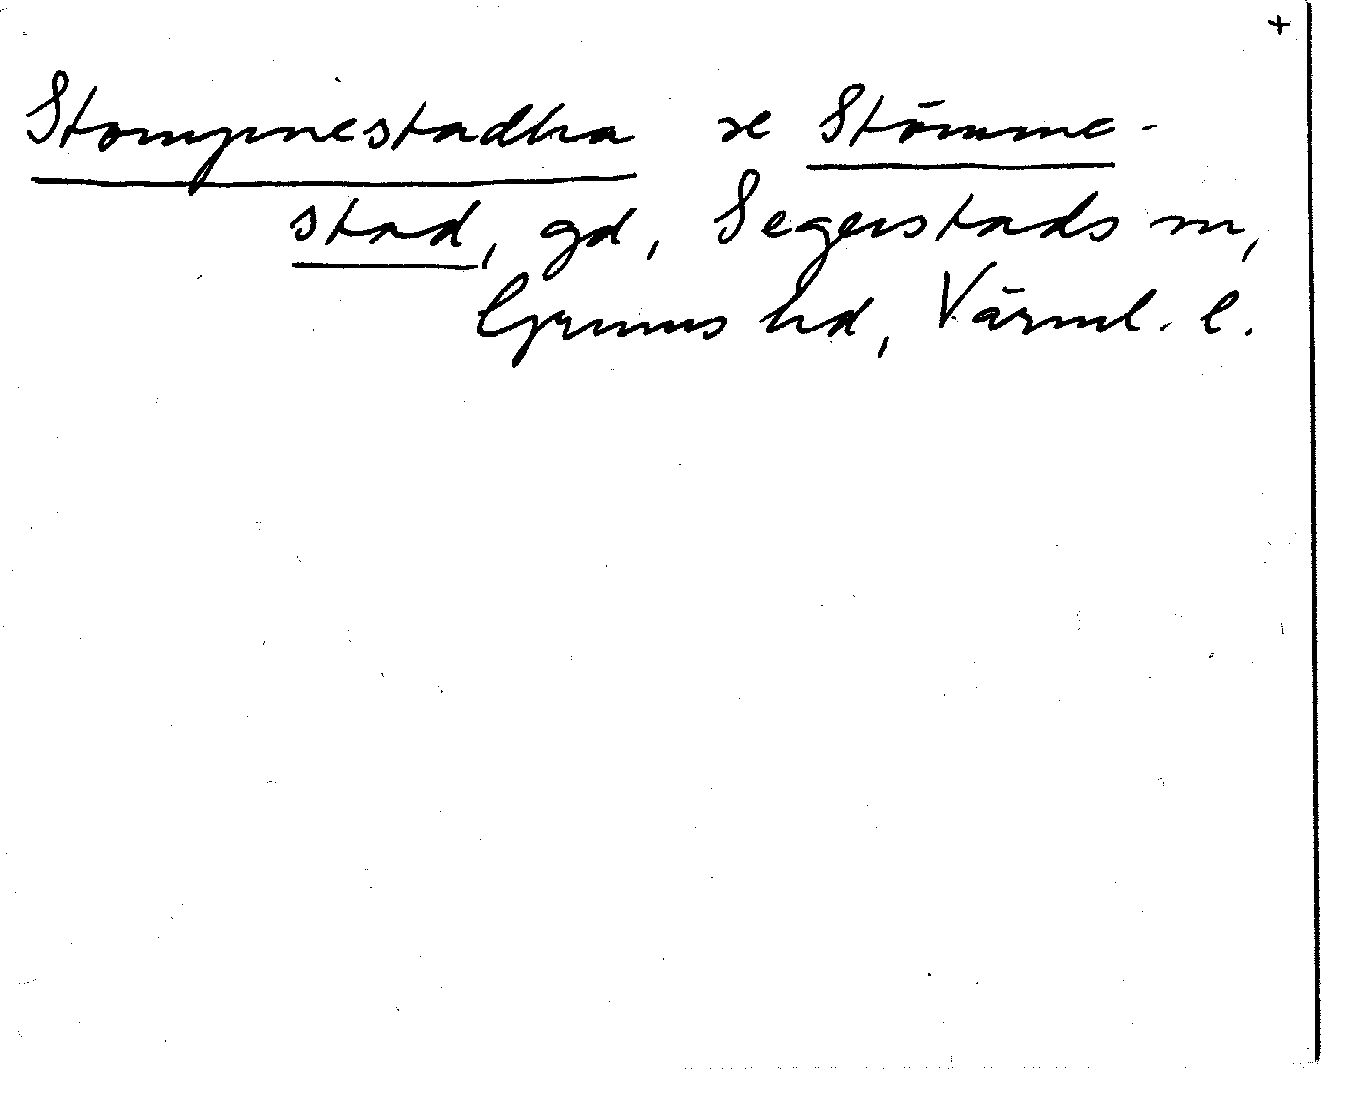 +
Stompnestadha se Stömme-
stad, gd, Segerstads sn,
Grums hd, Värml. l.